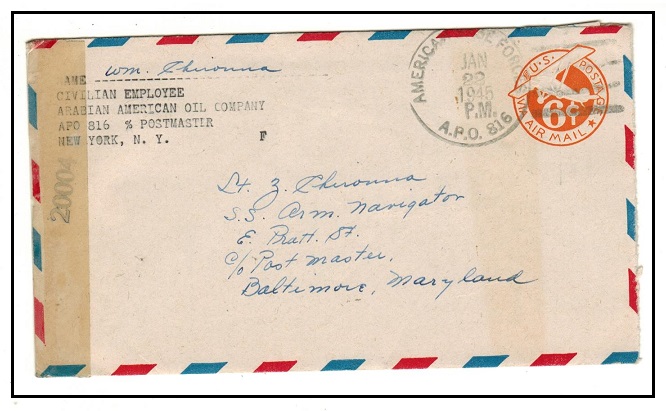 AME Wm. Chironna
CIVILIAN EMPLOYEE
ARABIAN AMERICAN OIL COMPANY
APO 816 % POSTMASTER
NEW YORK, N. Y. F
20004
JAN
22
1945
P.M.
A.P.O. 816
U.S. POSTAGE
6¢
VIA AIR MAIL
Lt. Z. Chironna
S.S. Arm. Navigator
E. Pratt. St.
c/o Post master,
Baltimore, Maryland